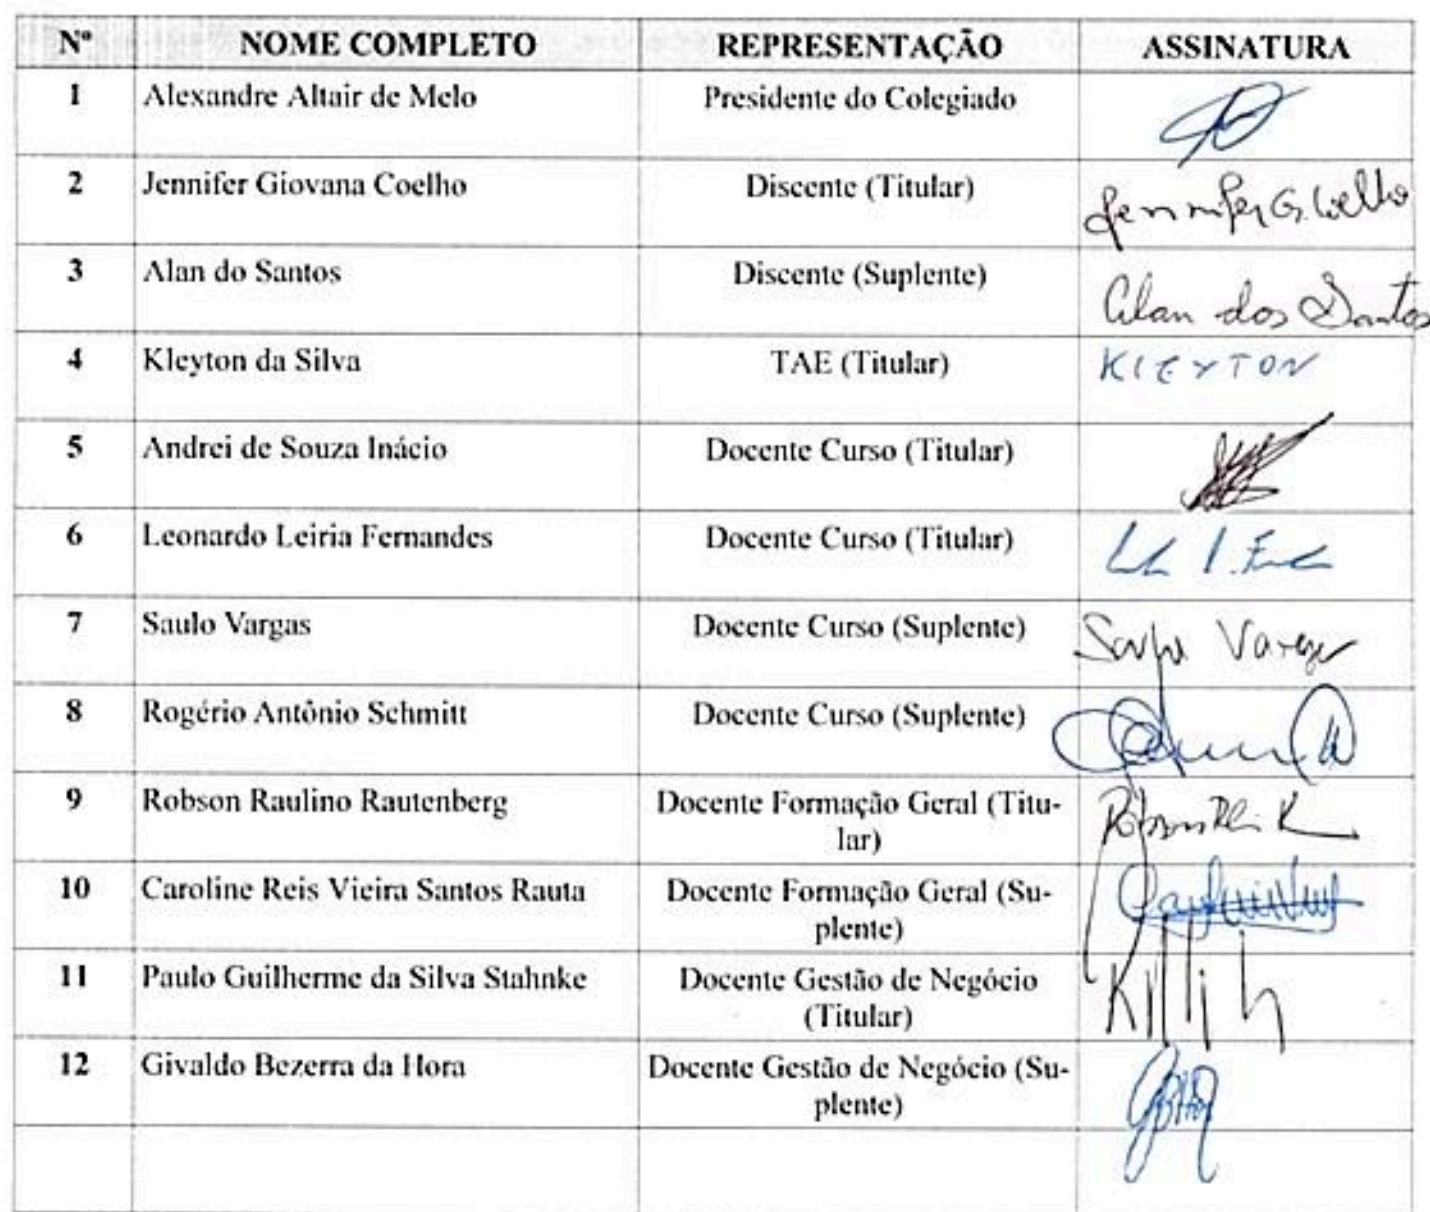 Nº NOME COMPLETO REPRESENTAÇÃO ASSINATURA
1 Alexandre Altair de Melo Presidente do Colegiado
2 Jennifer Giovana Coelho Discente (Titular) Jennifer G. Coelho
3 Alan do Santos Discente (Suplente) Alan dos Santos
4 Kleyton da Silva TAE (Titular) KLEYTON
5 Andrei de Souza Inácio Docente Curso (Titular)
6 Leonardo Leiria Fernandes Docente Curso (Titular)
7 Saulo Vargas Docente Curso (Suplente) Saulo Vargas
8 Rogério Antônio Schmitt Docente Curso (Suplente)
9 Robson Raulino Rautenberg Docente Formação Geral (Titu-
lar)
10 Caroline Reis Vieira Santos Rauta Docente Formação Geral (Su-
plente)
11 Paulo Guilherme da Silva Stahnke Docente Gestão de Negócio
(Titular)
12 Givaldo Bezerra da Hora Docente Gestão de Negócio (Su-
plente)